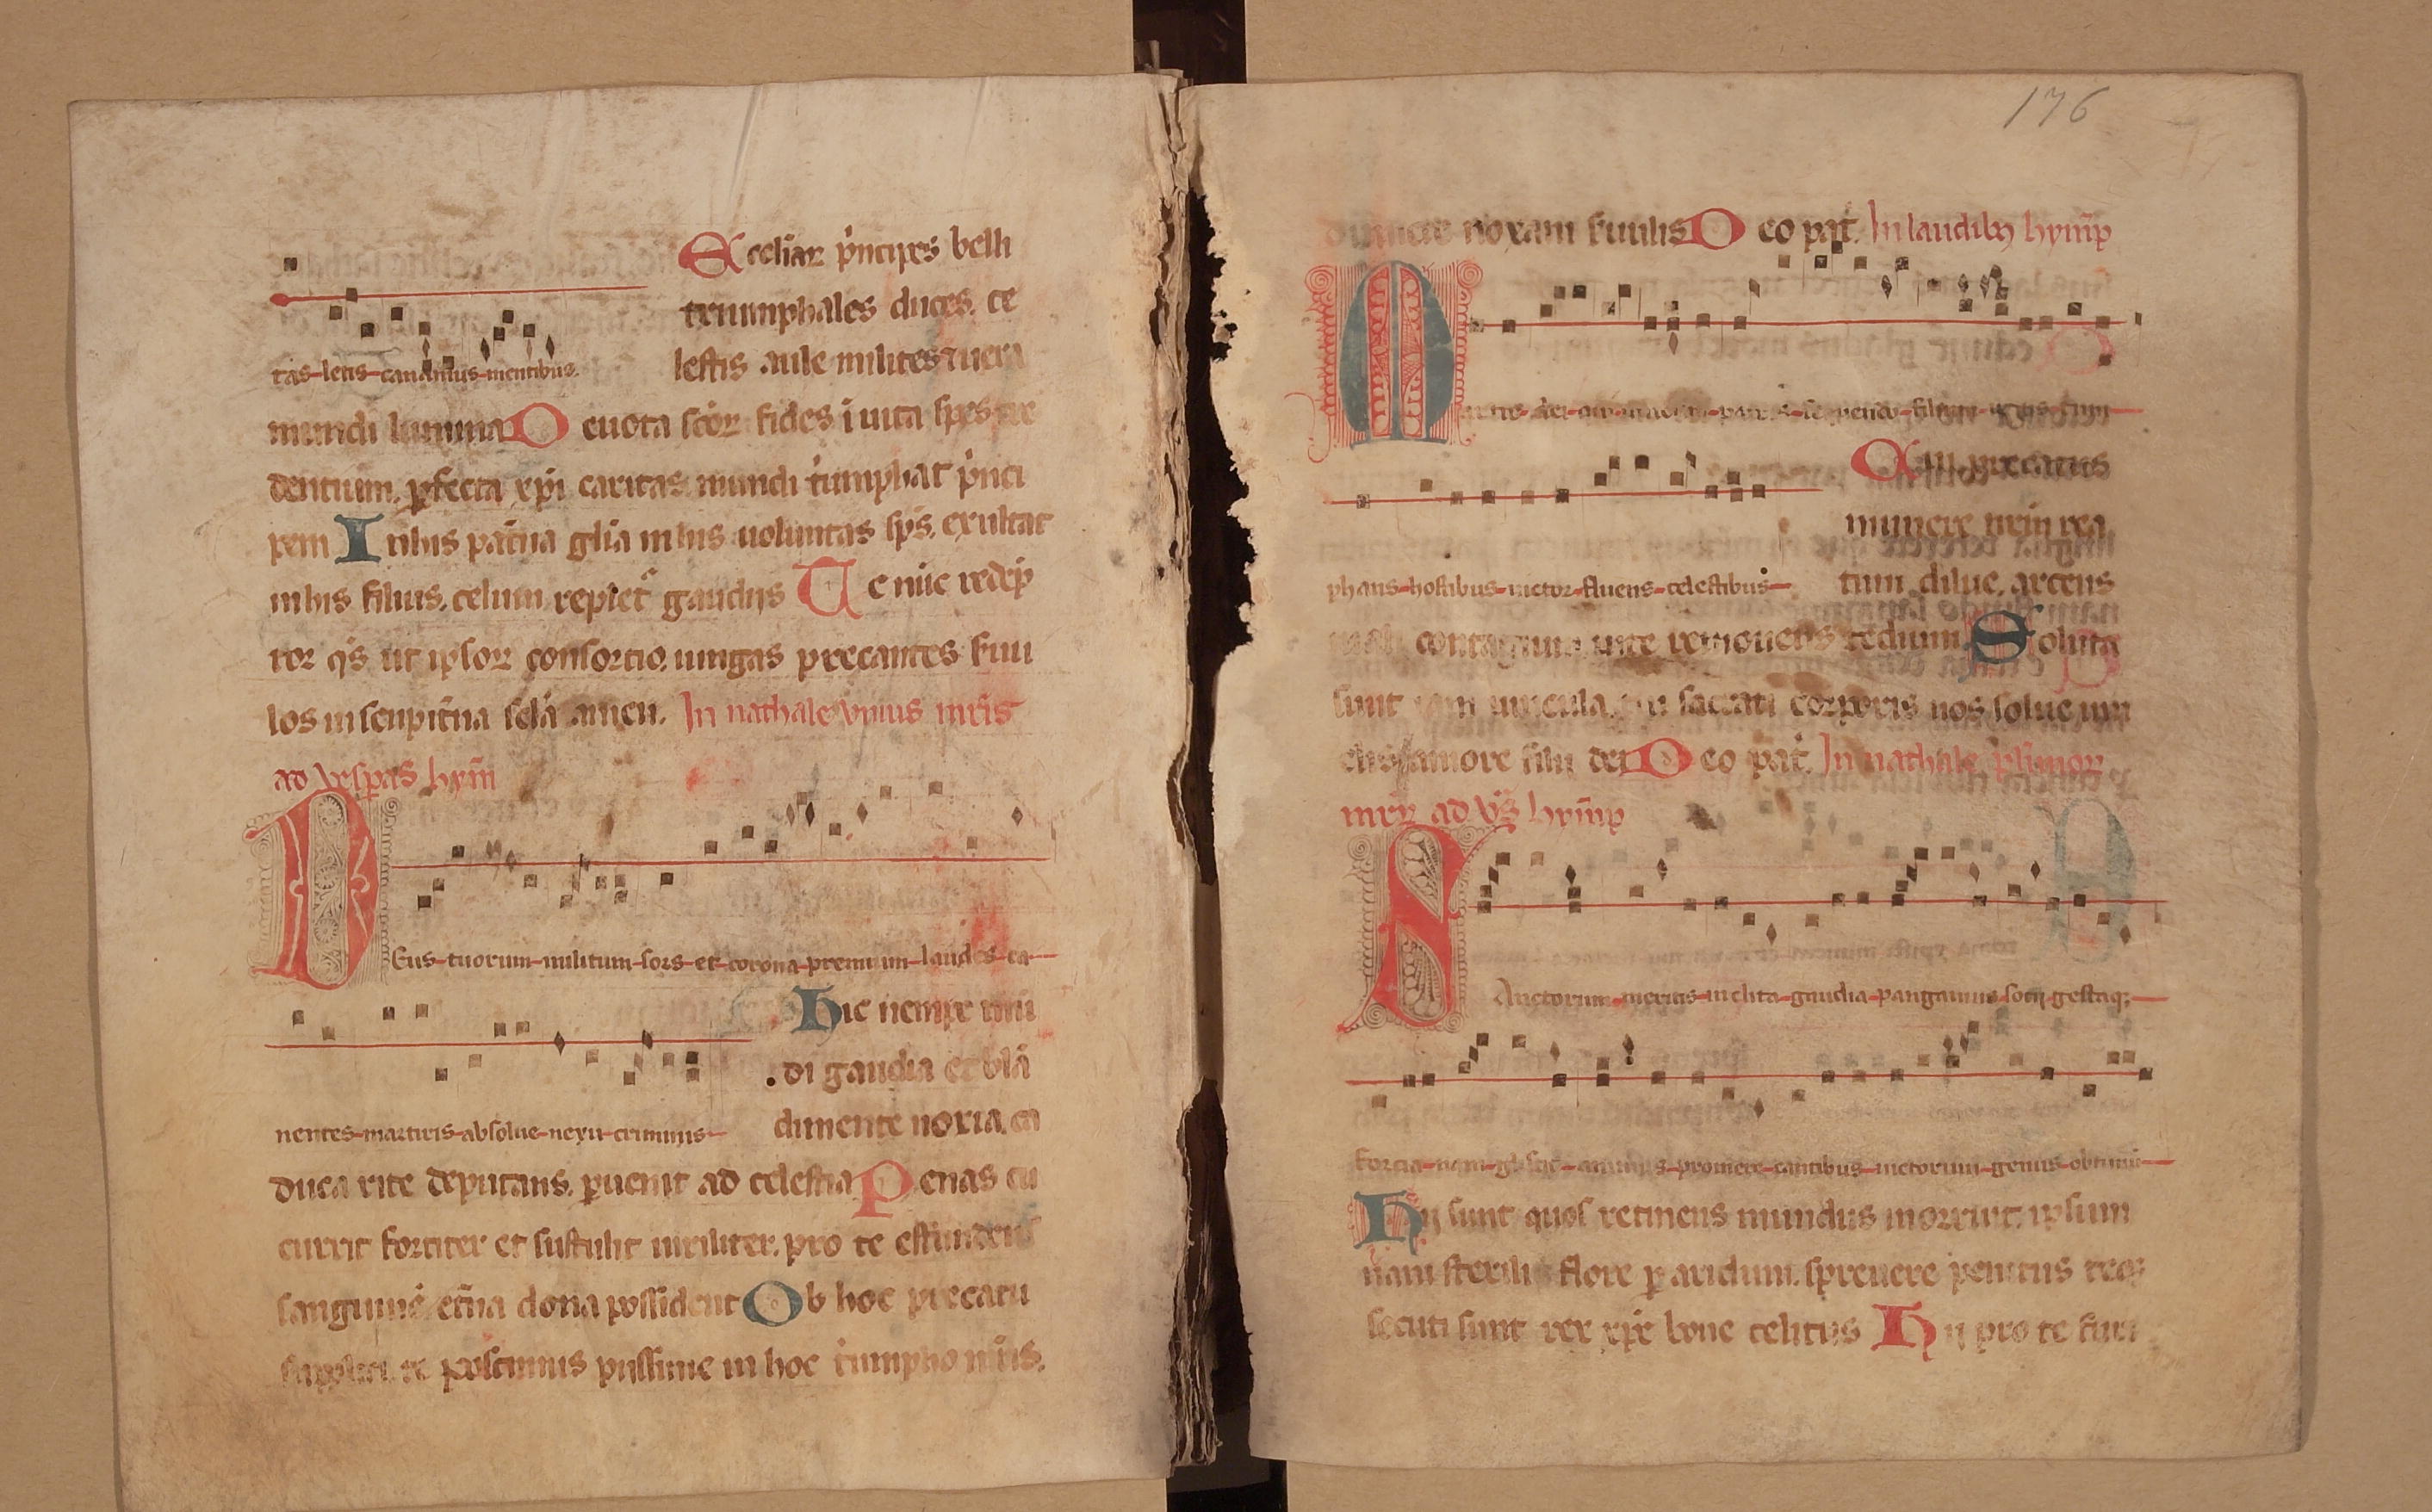 Eccliaꝝ p͛ncipes belli
triumphales duces. ce
tas letis canamus mentibus.
lestis aule milites ⁊ uera
mundi lumina D euota sc̄oꝝ fides i uita spes cre
dentium. ꝑfecta xp̄i caritas mundi t͛umphat p͛nci
pem I n his pat̄na gl̄ia in his uoluntas sp̄s. exultat
in his filius. celum replet᷑ gaudiis T e nūc redēp
tor q̄s ut ipsoꝝ consortio. iungas precantes seruu
los in sempit̄na sc̄la amen. In nathale unius mr̄is
ad vesꝑas hym̄
D Eus tuorum militum sors et corona premium laudes ca
H ic nempe mū
di gaudia et blā
nentes martiris absolue nexu criminis
dimenta noxia. ca
duca rite deputans. ꝑuenit ad celestia P enas cu
currit fortiter et sustulit uiriliter. pro te effundens
sanguinē et̄na dona possident O b hoc precatu
supplici te poscimus piissime in hoc t͛umpho mr̄is.
176
dimitte noxam seruulis D eo pat͛. In laudibꝫ hym̄p
M artir dei qui unicum patris sequendo filium uictis trium
T ui precatus
munere nr̄m rea
phans hostibus uictor fruens celestibus
tum dilue. arcens
mali contagium uite remouens tedium S oluta
sunt iam uincula tui sacrati corporis nos solue uin
clis amore filii dei D eo pat͛. In nathale pl̄imoꝝ
mr̄ꝝ ad v̄s hym̄p
S Anctorum meritis inclita gaudia pangamus socii gestaqꝫ
fortia nam gliscit animus promere cantibus uictorum genus optimū
H ii sunt quos retinens mundus inhorruit. ipsum
nam sterili flore ꝑ aridum. spreuere penitus teqꝫ
secuti sunt rex xp̄e bone celitus H ii pro te furi